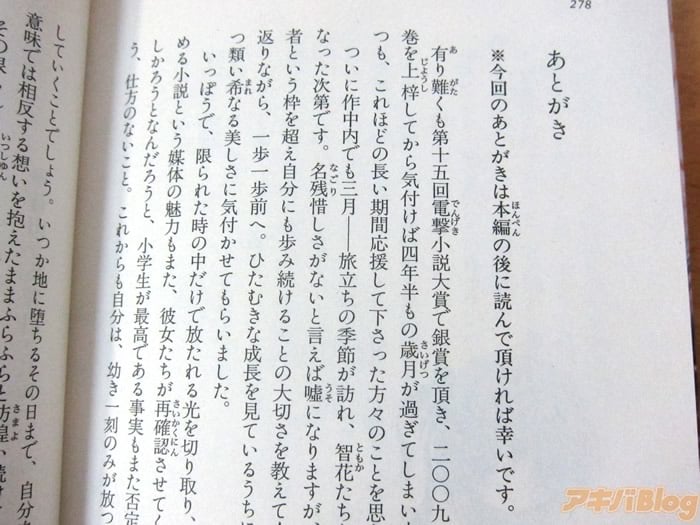 278
あとがき
※今回のあとがきは本編の後に読んで頂ければ幸いです。
有り難くも第十五回電撃小説大賞で銀賞を頂き、二〇〇九
巻を上梓してから気付けば四年半もの歳月が過ぎてしまい
つも、これほどの長い期間応援して下さった方々のことを思
ついに作中内でも三月――旅立ちの季節が訪れ、智花たち
なった次第です。名残惜しさがないと言えば嘘になりますが
者という枠を超え自分にも歩み続けることの大切さを教えて
返りながら、一歩一歩前へ。ひたむきな成長を見ているうちに
つ類い希なる美しさに気付かせてもらいました。
いっぽうで、限られた時の中だけで放たれる光を切り取り、
める小説という媒体の魅力もまた、彼女たちが再確認させてく
しかろうとなんだろうと、小学生が最高である事実もまた否定
う、仕方のないこと。これからも自分は、幼き一刻のみが放つ
していくことでしょう。いつか地に堕ちるその日まで、自分
意味では相反する想いを抱えたままふらふらと彷徨い続け
アキバBlog